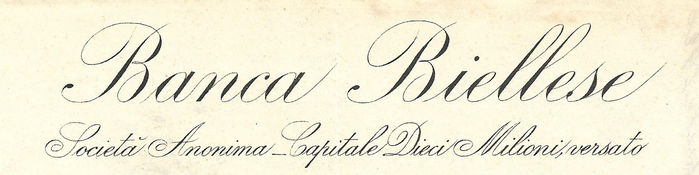 Banca Biellese
Società Anonima_Capitale Dieci Milioni, versato